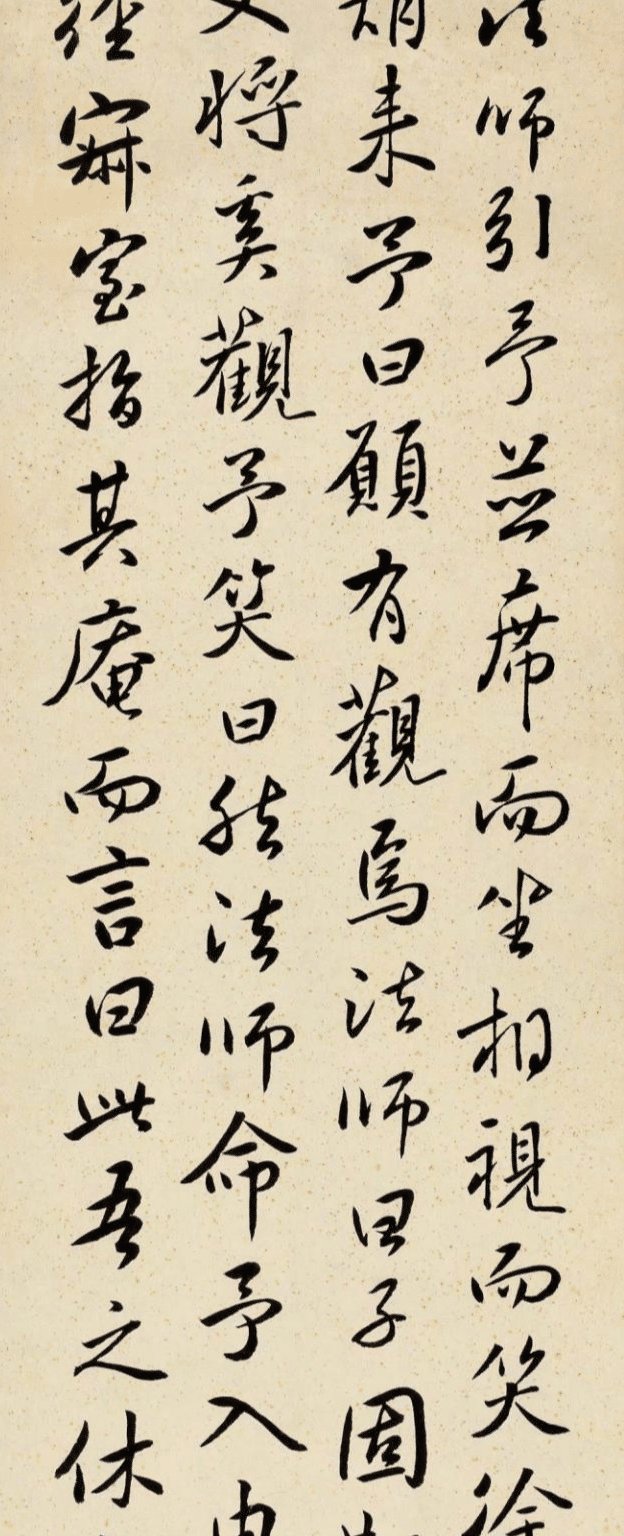 法師引予並席而坐相視而笑徐
胡来予曰願有觀焉法師曰子固
又將奚觀予笑曰然法師命予入由
經寂室指其庵而言曰此吾之休